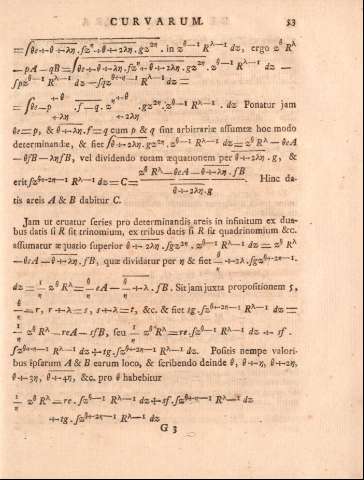 CURVARUM. 53
= ∫θe + θ + λη . fzⁿ + θ + 2λη . gz²ⁿ . in z^θ−1 R^λ−1 dz, ergo z^θ R^λ
− pA − qB = ∫θe + θ + λη . fzⁿ + θ + 2λη . gz²ⁿ . z^θ−1 R^λ−1 dz −
∫pz^θ−1 R^λ−1 dz − ∫qz^θ+η−1 R^λ−1 dz =
+ θ + θ
= ∫θe − p . f − q . zⁿ . gz²ⁿ . z^θ−1 R^λ−1 . dz Ponatur jam
+ λη + 2λη
θe = p, & θ + λη . f = q cum p & q sint arbitrariæ assumtæ hoc modo
determinandæ, & fiet ∫θ + 2λη . gz²ⁿ . z^θ−1 R^λ−1 dz = z^θ R^λ − θeA
− θfB − ληfB, vel dividendo totam æquationem per θ + 2λη . g, &
z^θ R^λ − θeA − θ + λη . fB
erit ∫z^θ+2η−1 R^λ−1 dz = C = . Hinc da-
θ + 2λη . g
tis areis A & B dabitur C.
Jam ut eruatur series pro determinandis areis in infinitum ex dua-
bus datis si R sit trinomium, ex tribus datis si R sit quadrinomium &c.
assumatur æquatio superior θ + 2λη . ∫gz²ⁿ . z^θ−1 R^λ−1 dz = z^θ R^λ
− θeA − θ + λη . fB, quæ dividatur per η & fiet θ/η + 2λ . ∫gz^θ+2η−1 .
dz = 1/η z^θ R^λ − θ/η eA − θ/η + λ . fB. Sit jam juxta propositionem 5,
θ/η = r, r + λ = s, s + λ = t, &c. & fiet tg . ∫z^θ+2η−1 R^λ−1 dz =
1/η z^θ R^λ − reA − sfB, seu 1/η z^θ R^λ = re . ∫z^θ−1 R^λ−1 dz + sf .
∫z^θ+η−1 R^λ−1 dz + tg . ∫z^θ+2η−1 R^λ−1 dz. Positis nempe valori-
bus ipsarum A & B earum loco, & scribendo deinde θ, θ + η, θ + 2η,
θ + 3η, θ + 4η, &c. pro θ habebitur
1/η z^θ R^λ = re . ∫z^θ−1 R^λ−1 dz + sf . ∫z^θ+η−1 R^λ−1 dz
+ tg . ∫z^θ+2η−1 R^λ−1 dz
G 3